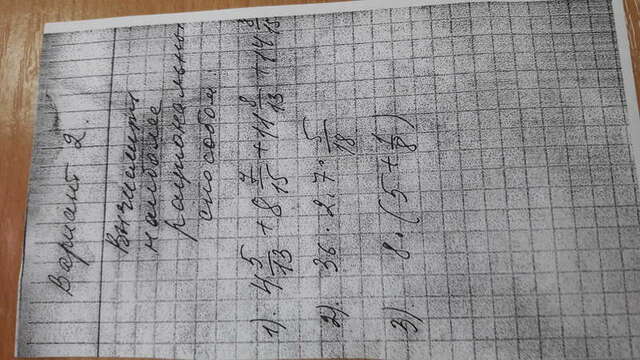 Вариант 2.
Вычислить
наиболее
рациональным
способом:
1). 4 5/13 + 8 7/15 + 11 8/13 + 14 8/15
2). 36 · 2,7 · 5/18
3). 8 · (5 + 1/8)